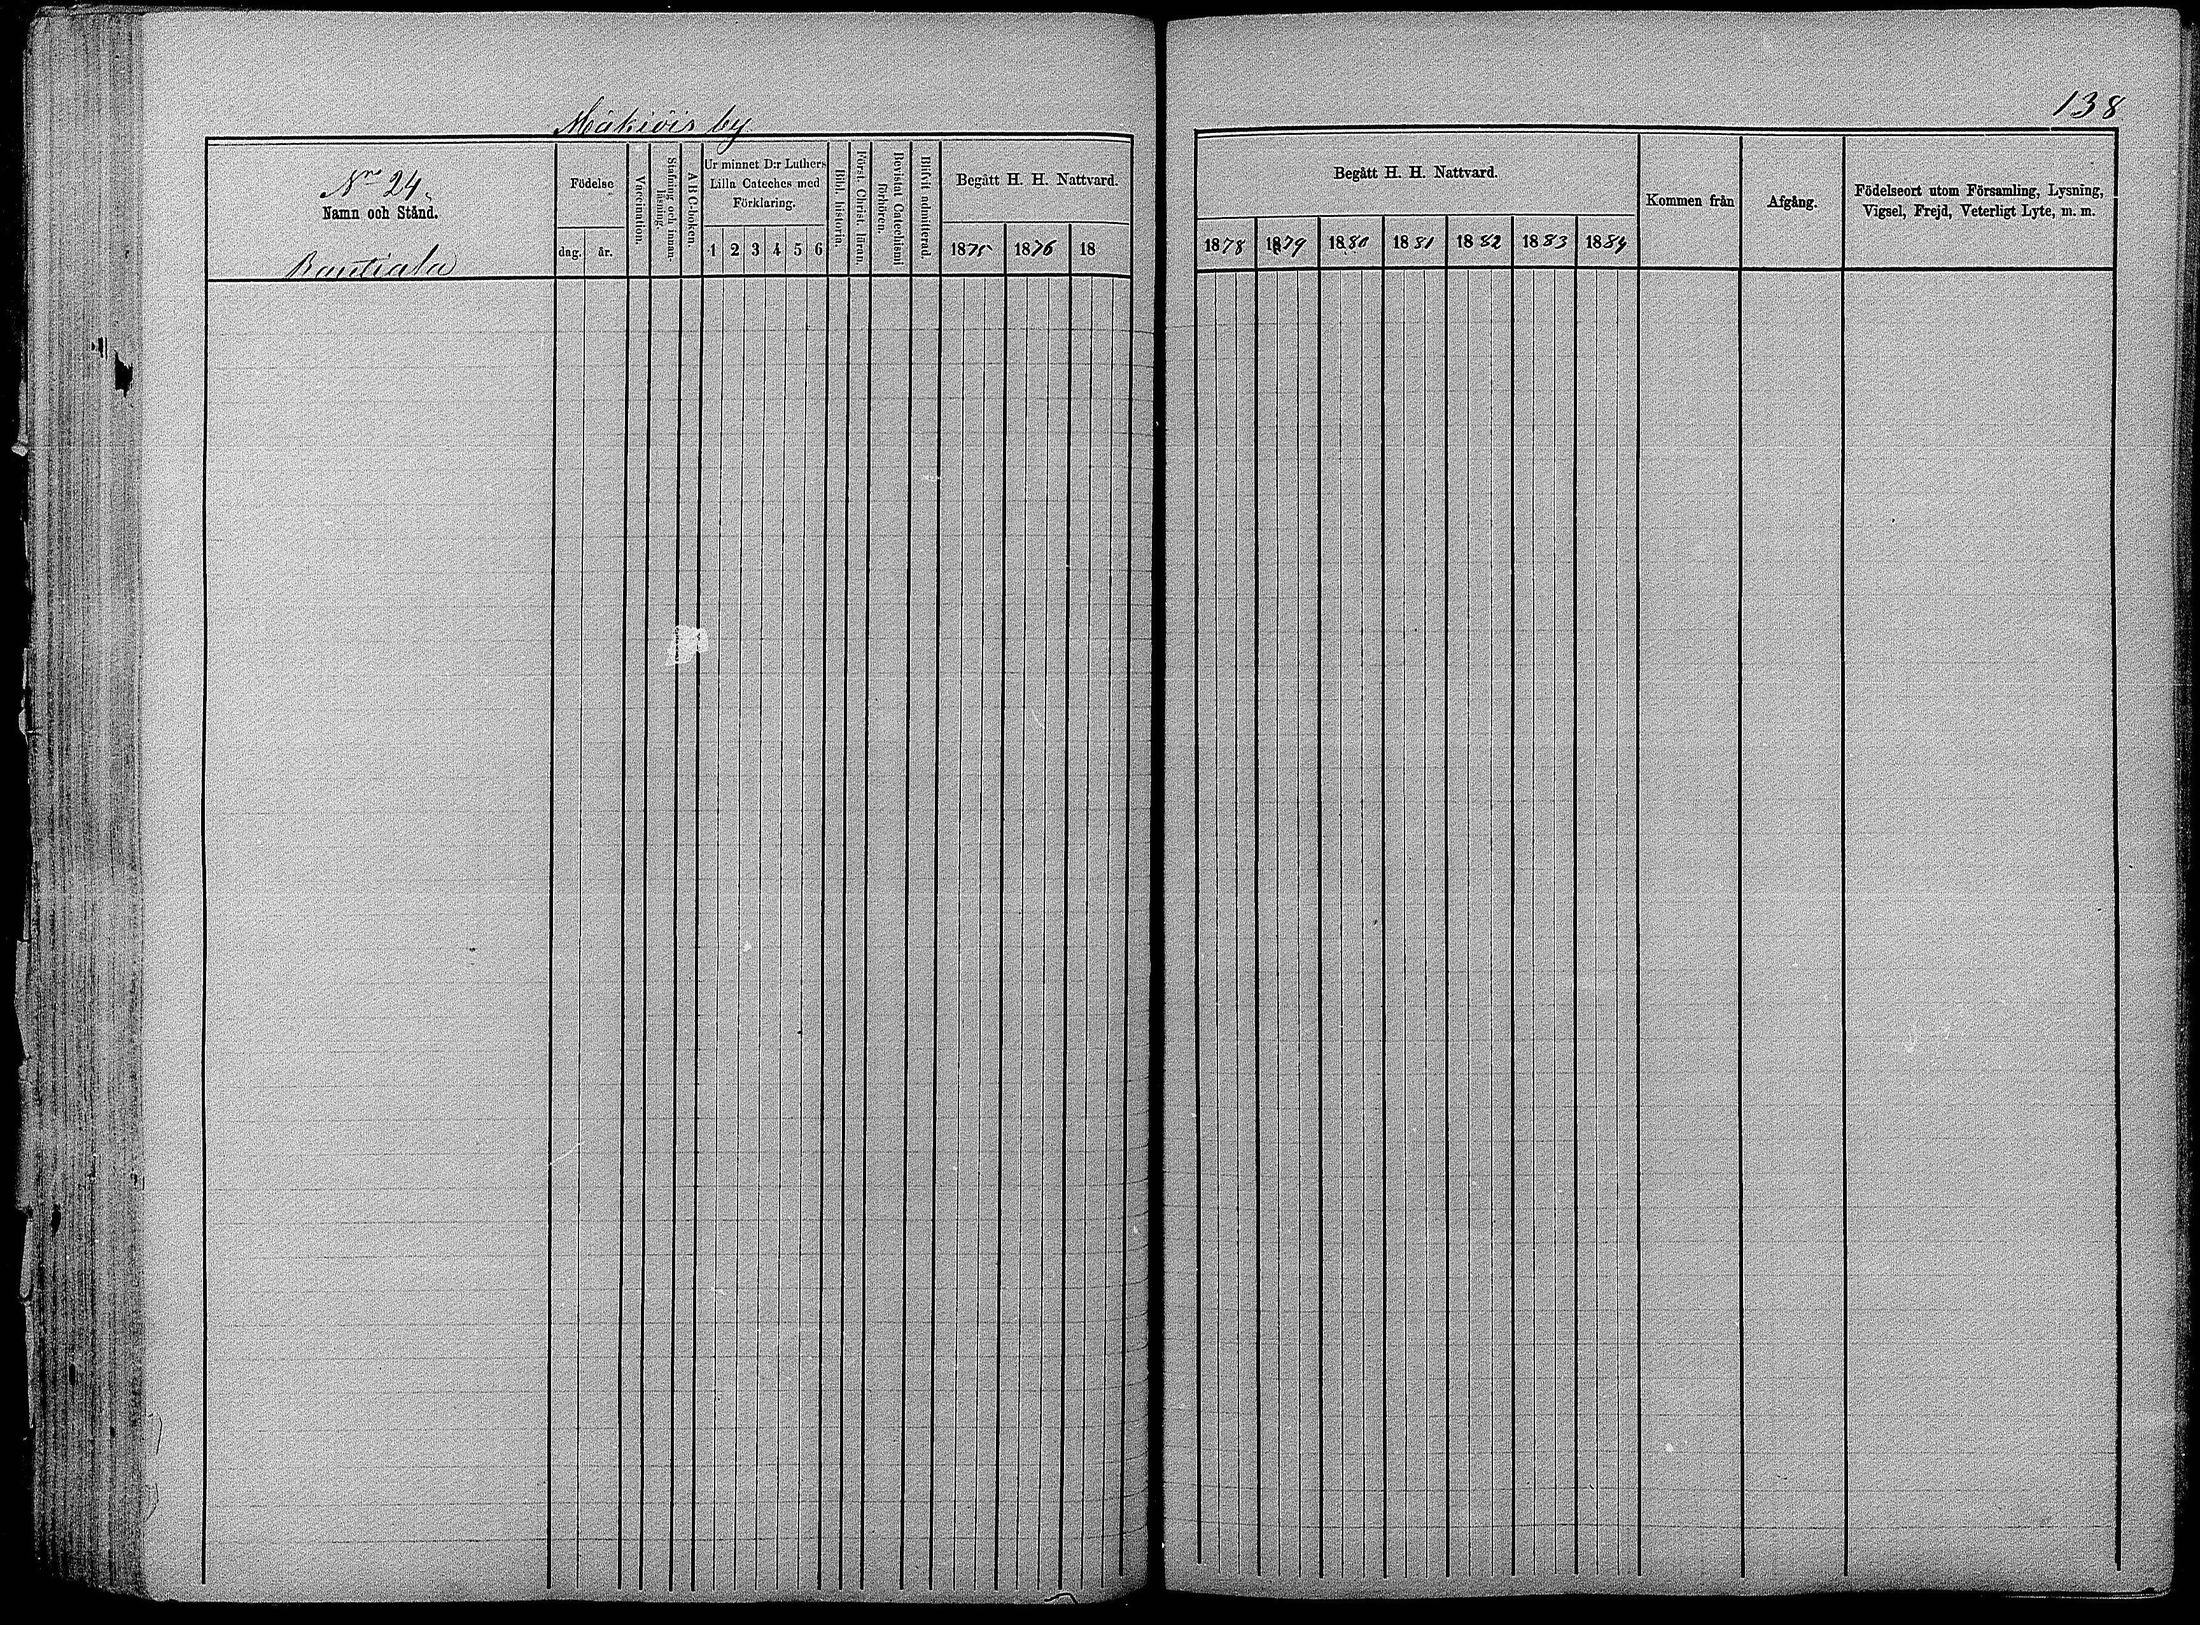 138
Mäkiois by
Nro 24.
Namn och Stånd.
Rautiala
Födelse
dag. år.
Vaccination.
Stafning och innan-
läsning.
A B C-boken.
Ur minnet D:r Luthers
Lilla Cateches med
Förklaring.
1 2 3 4 5 6
Bibl. historia.
Först. Christ. läran.
Bevistat Catechismi
förhören.
Blifvit admitterad.
Begått H. H. Nattvard.
1875 1876 18
Begått H. H. Nattvard.
1878 1879 1880 1881 1882 1883 1884
Kommen från
Afgång.
Födelseort utom Församling, Lysning,
Vigsel, Frejd, Veterligt Lyte, m. m.